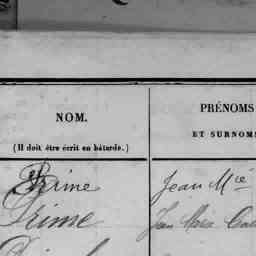 NOM.
(Il doit être écrit en bâtarde.)
PRÉNOMS
ET SURNOMS
Prime Jean Mie
Prime Jean Marie